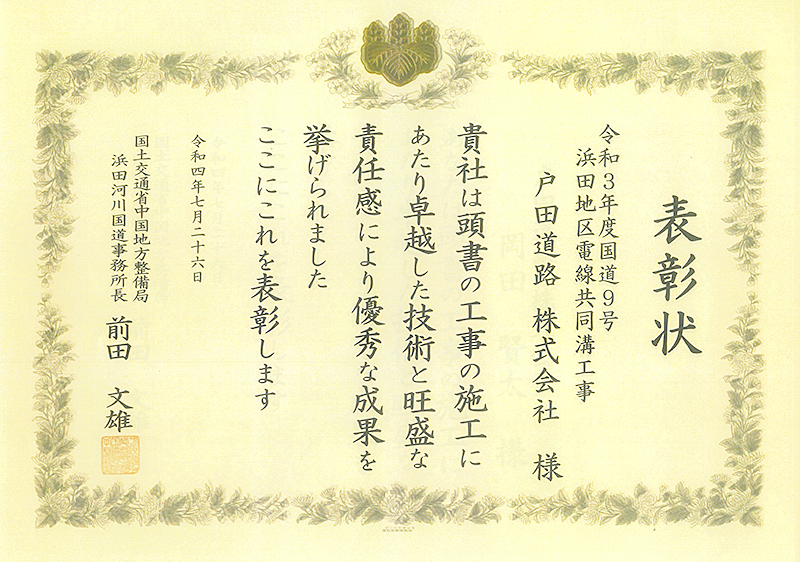 表彰状
令和3年度国道9号
浜田地区電線共同溝工事
戸田道路株式会社 様
貴社は頭書の工事の施工に
あたり卓越した技術と旺盛な
責任感により優秀な成果を
挙げられました
ここにこれを表彰します
令和四年七月二十六日
国土交通省中国地方整備局
浜田河川国道事務所長 前田 文雄